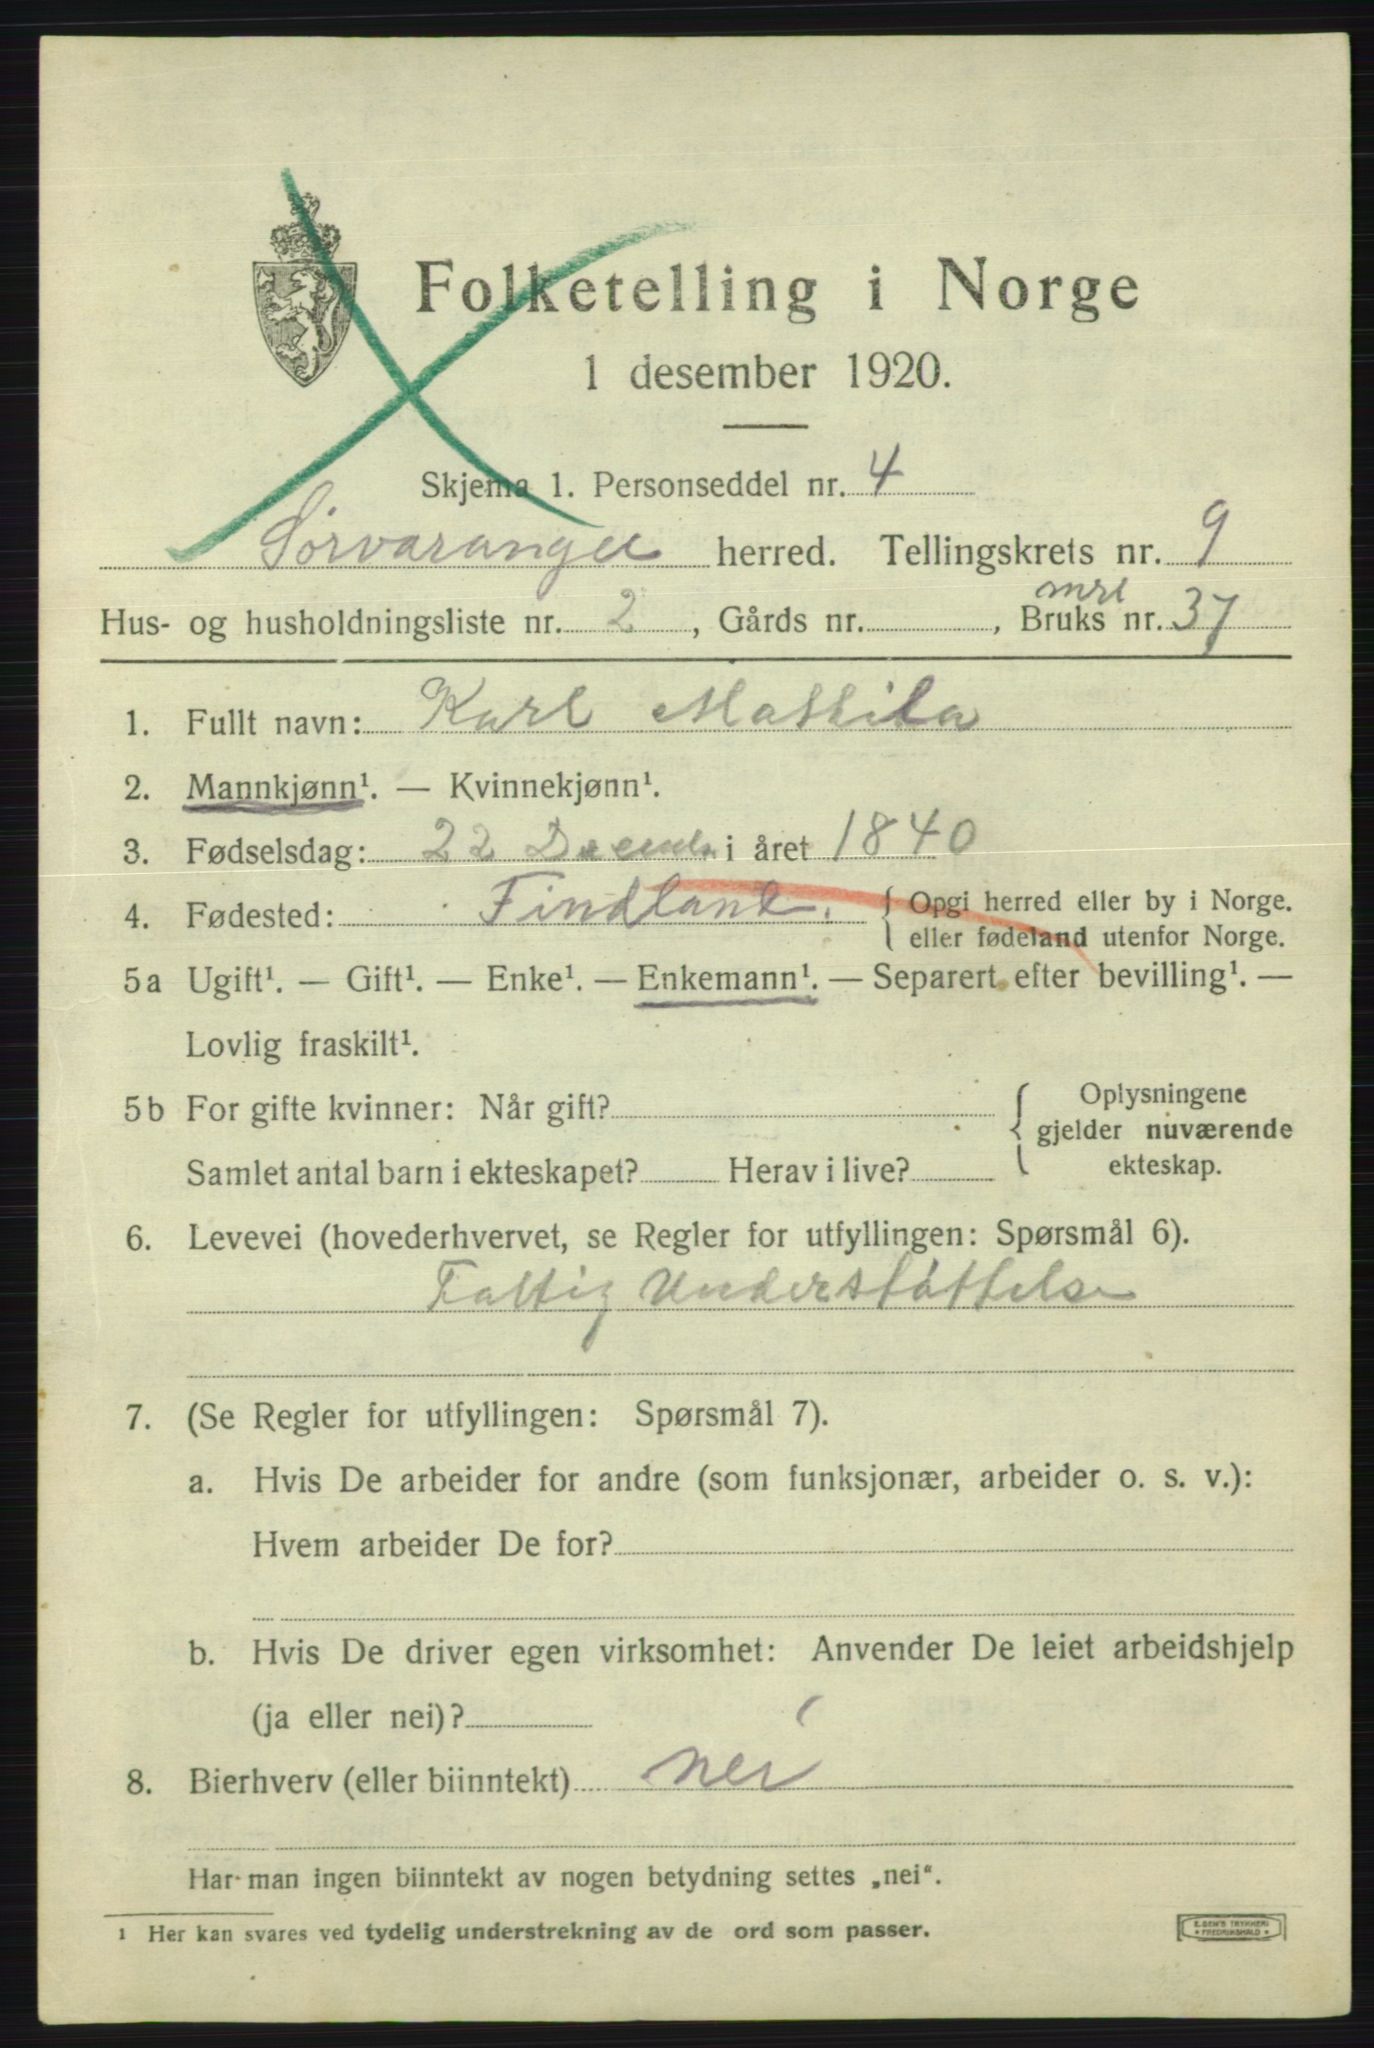 Folketelling i Norge
1 desember 1920.
Skjema 1. Personseddel nr. 4
Sørvaranger herred. Tellingskrets nr. 9
mrl
Hus- og husholdningsliste nr. 2, Gårds nr. , Bruks nr. 37
1. Fullt navn: Karl Mattila
2. Mannkjønn¹. — Kvinnekjønn¹.
3. Fødselsdag: 22 Decemb. i året 1840
4. Fødested: Findland. { Opgi herred eller by i Norge.
eller fødeland utenfor Norge.
5a Ugift¹. — Gift¹. — Enke¹. — Enkemann¹. — Separert efter bevilling¹. —
Lovlig fraskilt¹.
5b For gifte kvinner: Når gift? { Oplysningene
gjelder nuværende
Samlet antal barn i ekteskapet? Herav i live? ekteskap.
6. Levevei (hovederhvervet, se Regler for utfyllingen: Spørsmål 6).
Fattig Understøttelse
7. (Se Regler for utfyllingen: Spørsmål 7).
a. Hvis De arbeider for andre (som funksjonær, arbeider o. s. v.):
Hvem arbeider De for?
b. Hvis De driver egen virksomhet: Anvender De leiet arbeidshjelp
(ja eller nei)?
8. Bierhverv (eller biinntekt) nei
Har man ingen biinntekt av nogen betydning settes „nei".
¹ Her kan svares ved tydelig understrekning av de ord som passer.
E. SEM'S TRYKKERI
* FREDRIKSHALD *